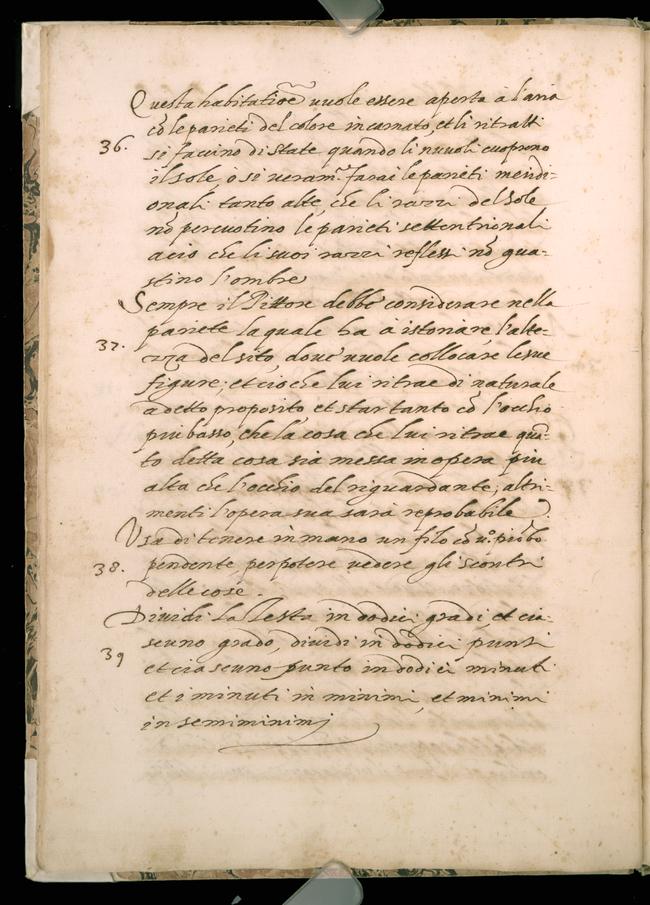 Questa habitatiōe vuole essere aperta à l'aria
cō le parieti del colore incarnato, et li ritratti
36.
si facino di state quando li nuvoli cuoprono
il sole, o si veram.te farai le parieti meridi-
onali tanto alte, che li razzi del sole
nō percuotino le parieti settentrionali
acio che li suoi razzi reflessi nō gua-
stino l'ombre
Sempre il Pittore debbe considerare nella
pariete la quale ha à istoriare l'alte-
37.
zza del sito, doue vuole collocare le sue
figure; et cio che lui ritrae di naturale
a detto proposito et star tanto cō l'occhio
piu basso, che la cosa che lui ritrae quā-
to detta cosa sia messa in opera piu
alta che l'occhio del riguardante, altri-
menti l'opera sua sara reprobabile
Usa di tenere in mano un filo cō u.o piōbo
38.
pendente per potere vedere gli scontri
delle cose.
Dividi la Testa in dodici gradi et cia-
scuno grado, dividi in dodici punti
39
et ciascuno punto in dodici minuti
et i minuti in minimi, et minimi
in semiminimj